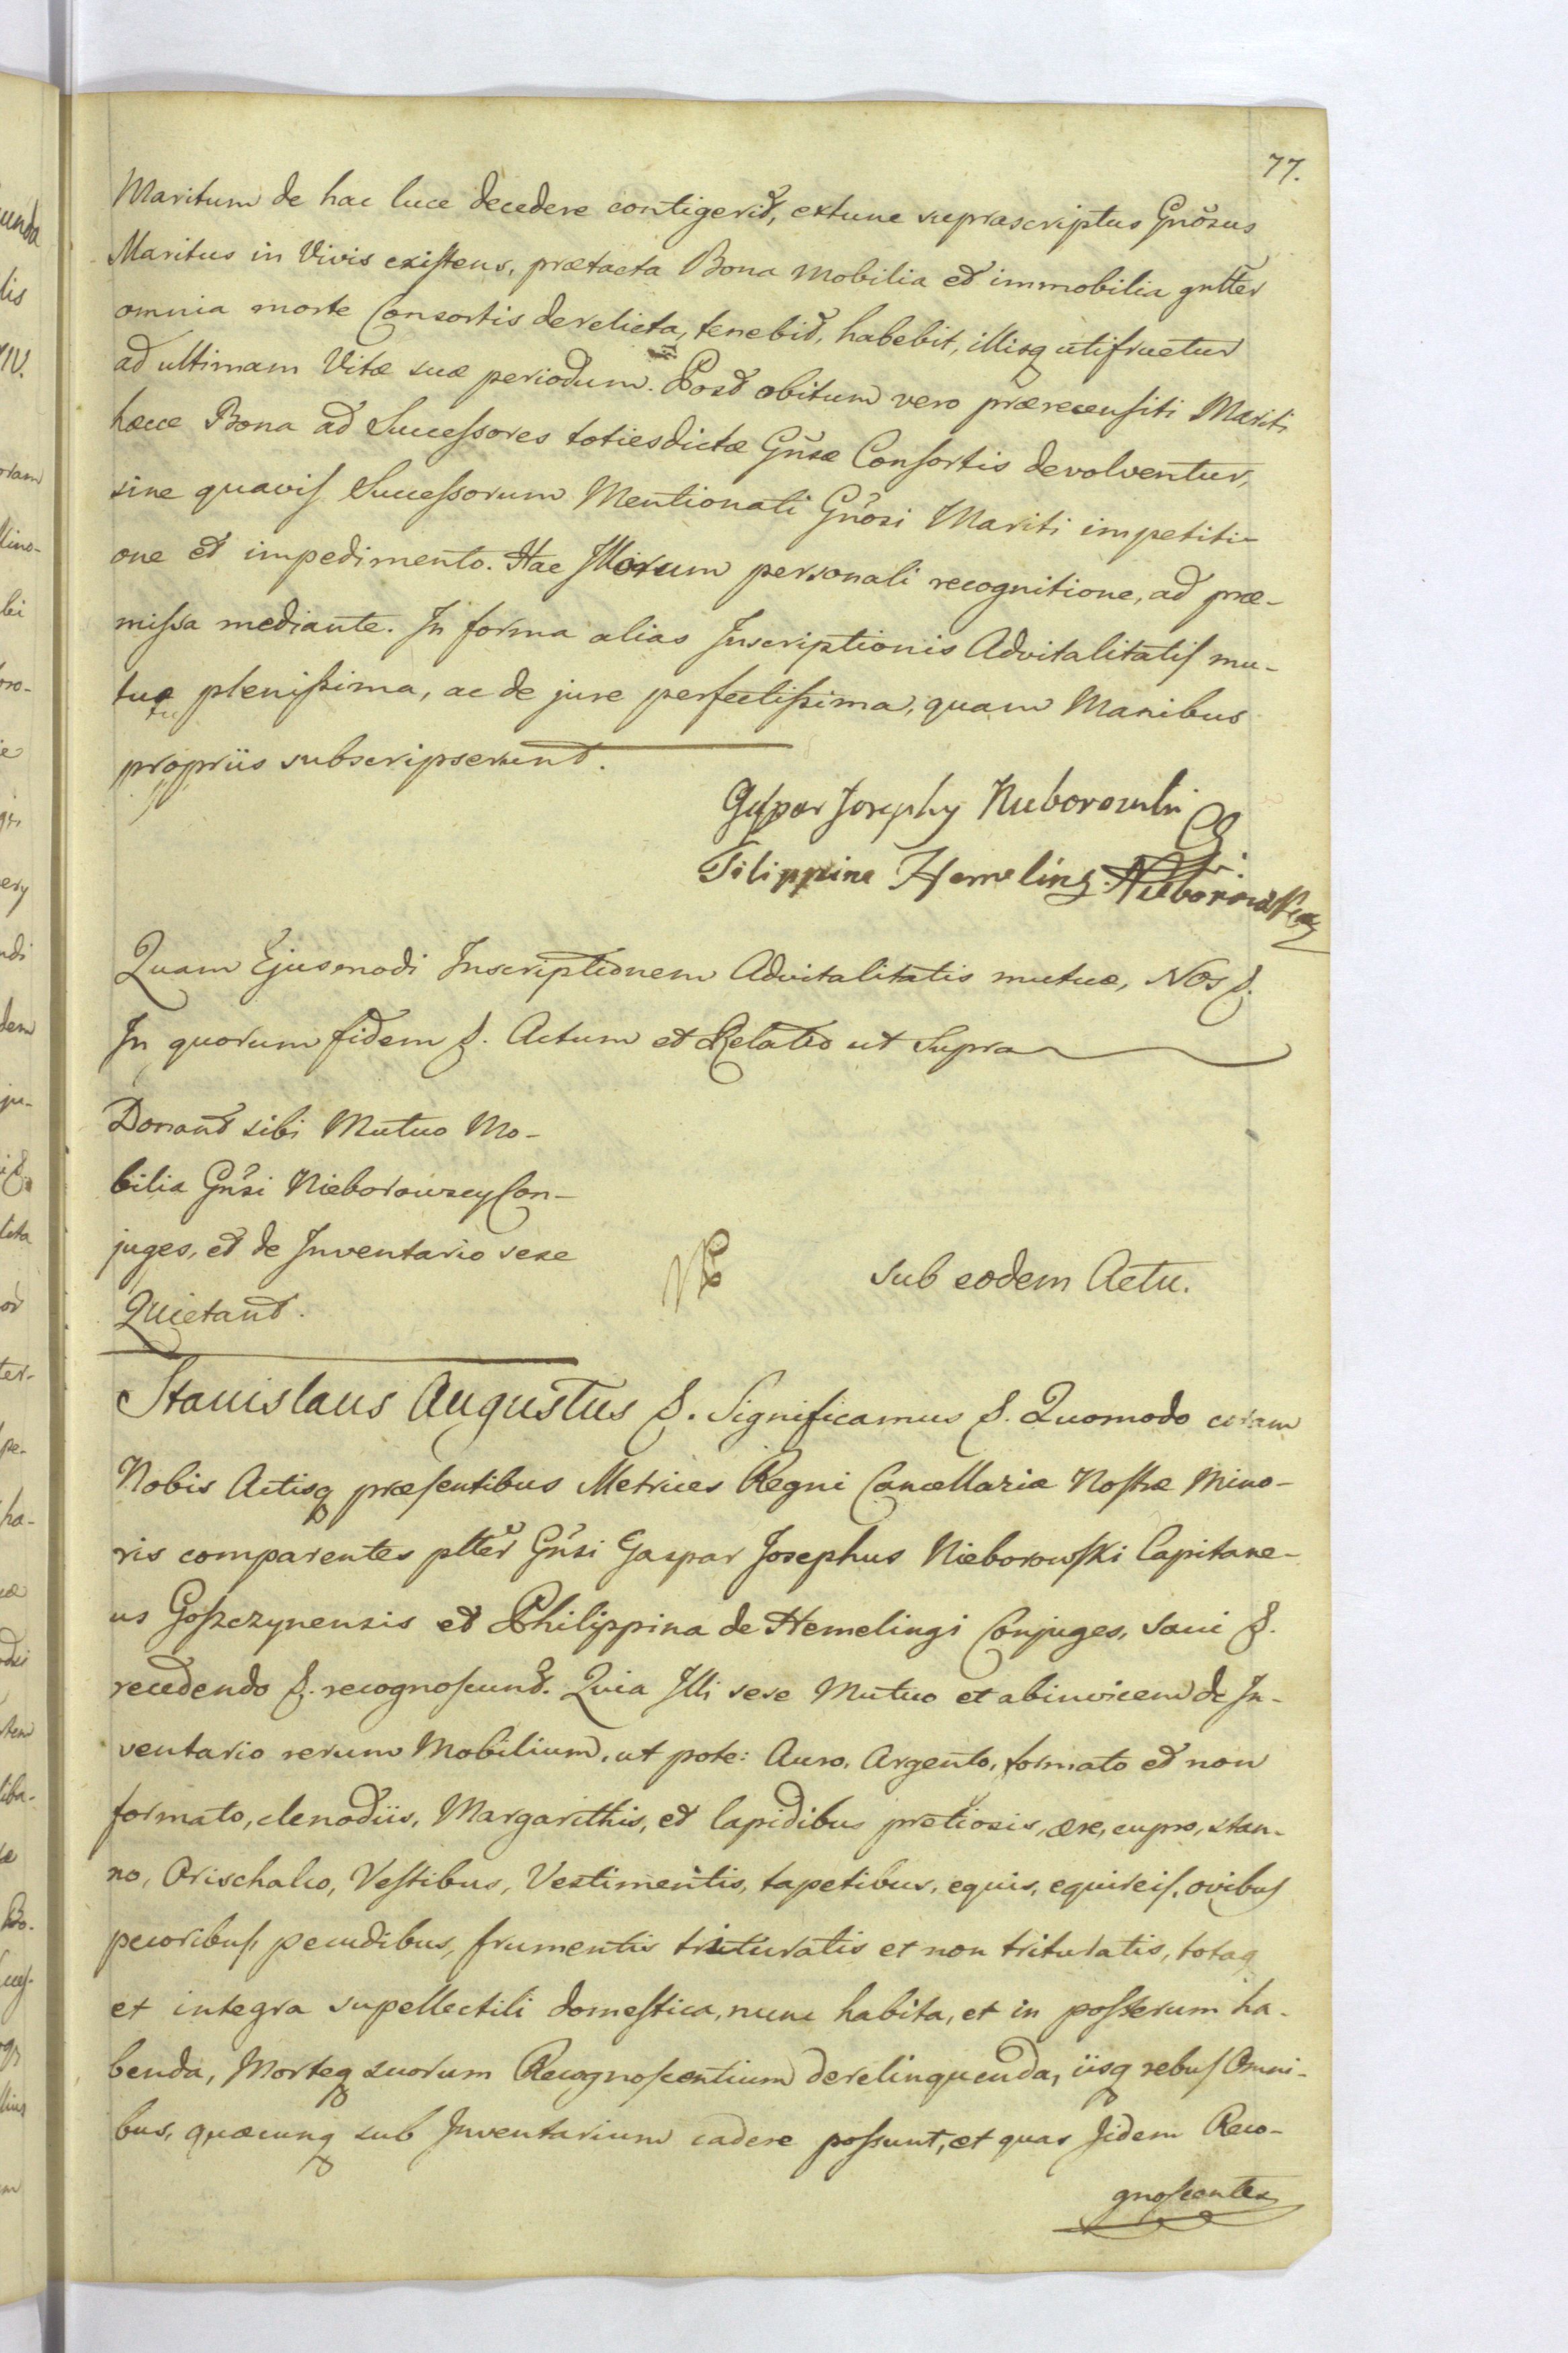 77.
Maritum de hac luce decedere contigerit, extunc suprascriptus Gnõsus
Maritus in Vivis existens, prætacta Bona mobilia et immobilia gnlter
omnia morte Consortis derelicta, tenebit, habebit, illisq utifruetur
ad ultimam Vitæ suæ periodum. Post obitum vero prærecensiti Mariti
hæcce Bona ad Successores totiesdictæ Gñsæ Consortis devolventur,
sine quavis Successorum Mentionati Gñosi Mariti impetiti-
one et impedimento. Hac Illorum personali recognitione, ad præ-
missa mediante. In forma alias Inscriptionis Advitalitatis mu-
tuæ plenissima, ac de jure perfectissima, quam Manibus
propriis subscripserunt.
Gaspar Josephy Nieborowski
Filippina Hemeling Nieborowska
Quam Ejusmodi Inscriptionem Advitalitatis mutuæ, Nos &.
In quorum fidem &. Actum et Relatio ut Supra
Donant sibi Mutuo Mo-
bilia Gñsi Nieborowscy Con-
juges, et de Inventario sese
Quietant.
sub eodem Actu.
Stanislaus Augustus &. Significamus &. Quomodo coram
Nobis Actisq præsentibus Metrices Regni Cancellariæ Nostræ Mino-
ris comparentes plter Gñsi Gaspar Josephus Nieborowski Capitane-
us Goszczynensis et Philippina de Hemelingi Conjuges, sani &.
recedendo &. recognoscunt. Quia Illi sese Mutuo et abinvicem de In-
ventario rerum Mobilium, ut pote: Auro, Argento, formato et non
formato, clenodiis, Margarithis, et lapidibus pretiosis, ære, cupro, stan-
no, Orischalco, Vestibus, Vestimentis, tapetibus, equis, equireis, ovibus
pecoribus, pecudibus, frumentis trituratis et non trituratis, totaq
et integra supellectili domestica, nunc habita, et in posterum ha-
benda, Morteq suorum Recognoscentium derelinquenda, iisq rebus Omni-
bus, quæcunq sub Inventarium cadere possunt, et quas Iidem Reco-
gnoscentes